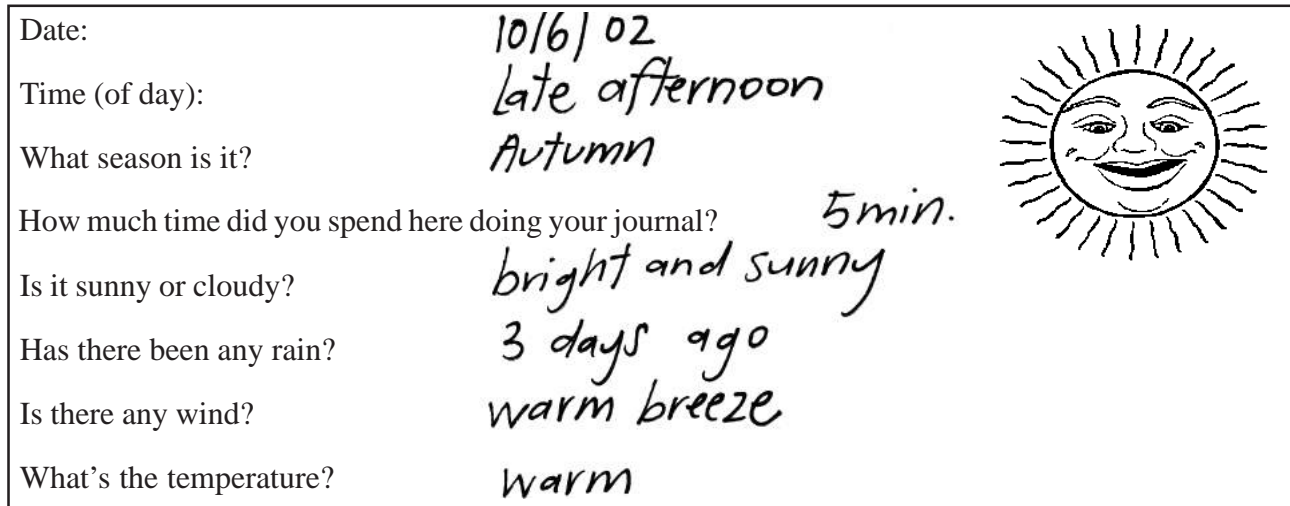 Date: 10/6/02
Time (of day): Late afternoon
What season is it? Autumn
How much time did you spend here doing your journal? 5 min.
Is it sunny or cloudy? bright and sunny
Has there been any rain? 3 days ago
Is there any wind? warm breeze
What’s the temperature? warm